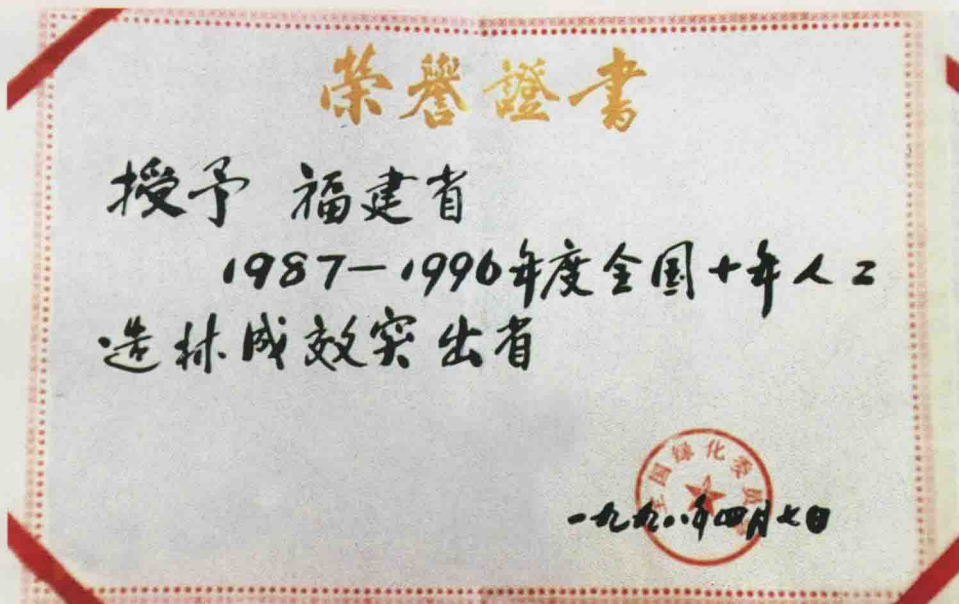 荣譽證書
授予 福建省
1987—1996年度全国十年人工
造林成效突出省
全国绿化委员会
一九九八年四月七日